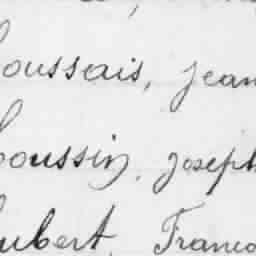 oussais, jean
oussin, joseph
ubert, Franco